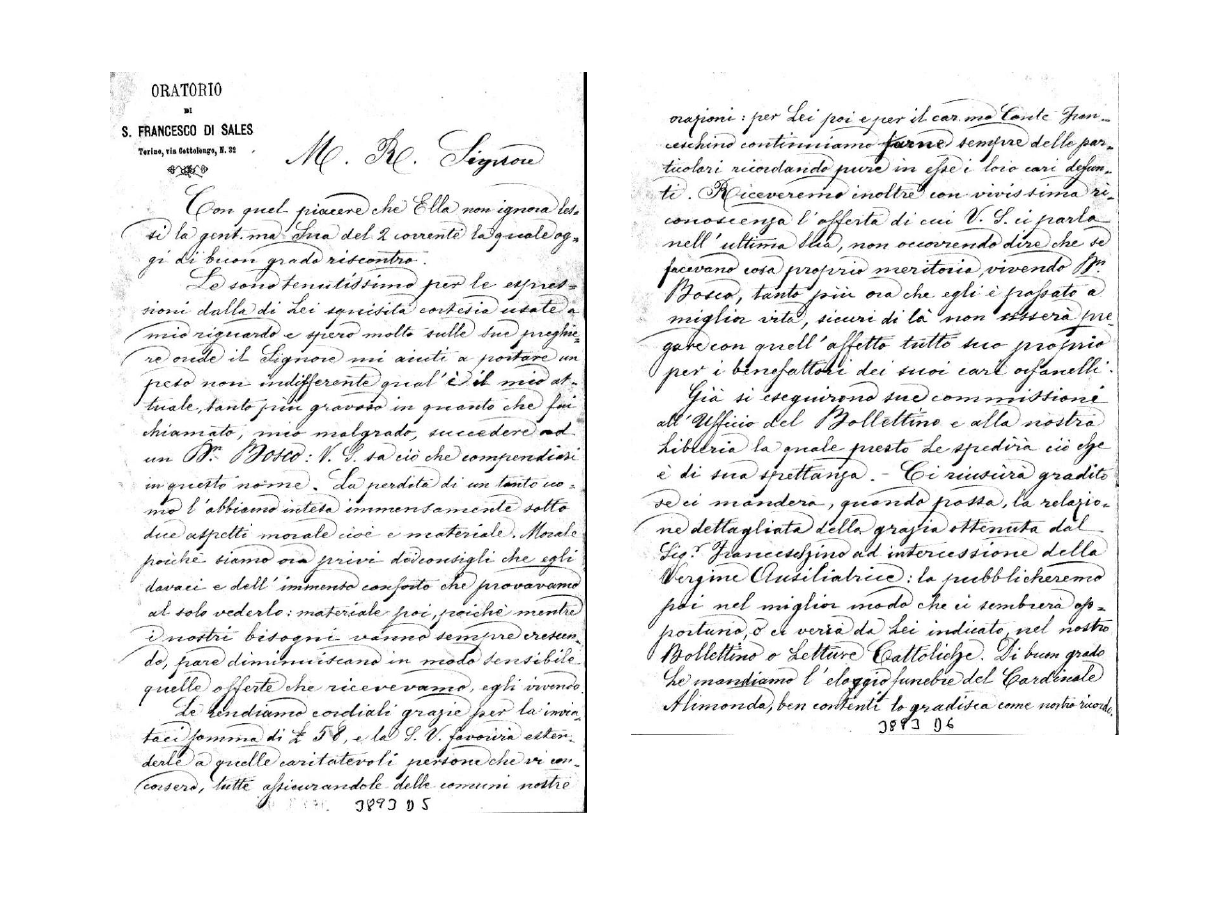 ORATORIO
DI
S. FRANCESCO DI SALES
Torino, via Cottolengo, N. 32
M. R. Signore
Con quel piacere che Ella non ignora les-
si la gent.ma Sua del 2 corrente la quale og-
gi di buon grado riscontro.
Le sono tenutissimo per le espres-
sioni dalla di Lei squisita cortesia usate a
mio riguardo e spero molto sulle sue preghie-
re onde il Signore mi aiuti a portare un
peso non indifferente qual'è il mio at-
tuale, tanto più gravoso in quanto che fui
chiamato, mio malgrado, succedere ad
un Dn. Bosco: V. S. sa ciò che compendiasi
in questo nome. La perdita di un tanto uo-
mo l'abbiamo intesa immensamente sotto
due aspetti morale cioè e materiale. Morale
poichè siamo ora privi dei consigli che egli
davaci e dell'immenso conforto che provavamo
al solo vederlo: materiale poi, poichè mentre
i nostri bisogni vanno sempre crescen-
do, pare diminuiscano in modo sensibile
quelle offerte che ricevevamo, egli vivendo.
Le rendiamo cordiali grazie per la invia-
taci somma di £ 58, e la S. V. favorirà esten-
derle a quelle caritatevoli persone che vi con-
corsero, tutte assicurandole delle comuni nostre
3893 D 5
orazioni: per Lei poi e per il car.mo Conte Fran-
ceschino continuiamo farne sempre delle par-
ticolari ricordando pure in esse i loro cari defun-
ti. Riceveremo inoltre con vivissima ri-
conoscenza l'offerta di cui V. S. ci parla
nell'ultima Sua, non occorrendo dire che se
facevano cosa proprio meritoria, vivendo Dn.
Bosco, tanto più ora che egli è passato a
miglior vita, sicuri di là non cesserà pre
gare con quell'affetto tutto suo proprio
per i benefattori dei suoi cari orfanelli.
Già si eseguirono sue commissioni
all'Ufficio del Bollettino e alla nostra
Libreria la quale presto Le spedirà ciò che
è di sua spettanza. - Ci riuscirà gradito
se ci manderà, quando possa, la relazio-
ne dettagliata della grazia ottenuta dal
Sig.r Franceschino ad intercessione della
Vergine Ausiliatrice: la pubblicheremo
poi nel miglior modo che ci sembrerà op-
portuno, o ci verrà da Lei indicato, nel nostro
Bollettino o Letture Cattoliche. Di buon grado
Le mandiamo l'elogio funebre del Cardinale
Alimonda, ben contenti lo gradisca come nostro ricordo.
3893 D 6